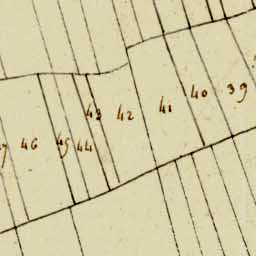 46 45 44 43 42 41 40 39